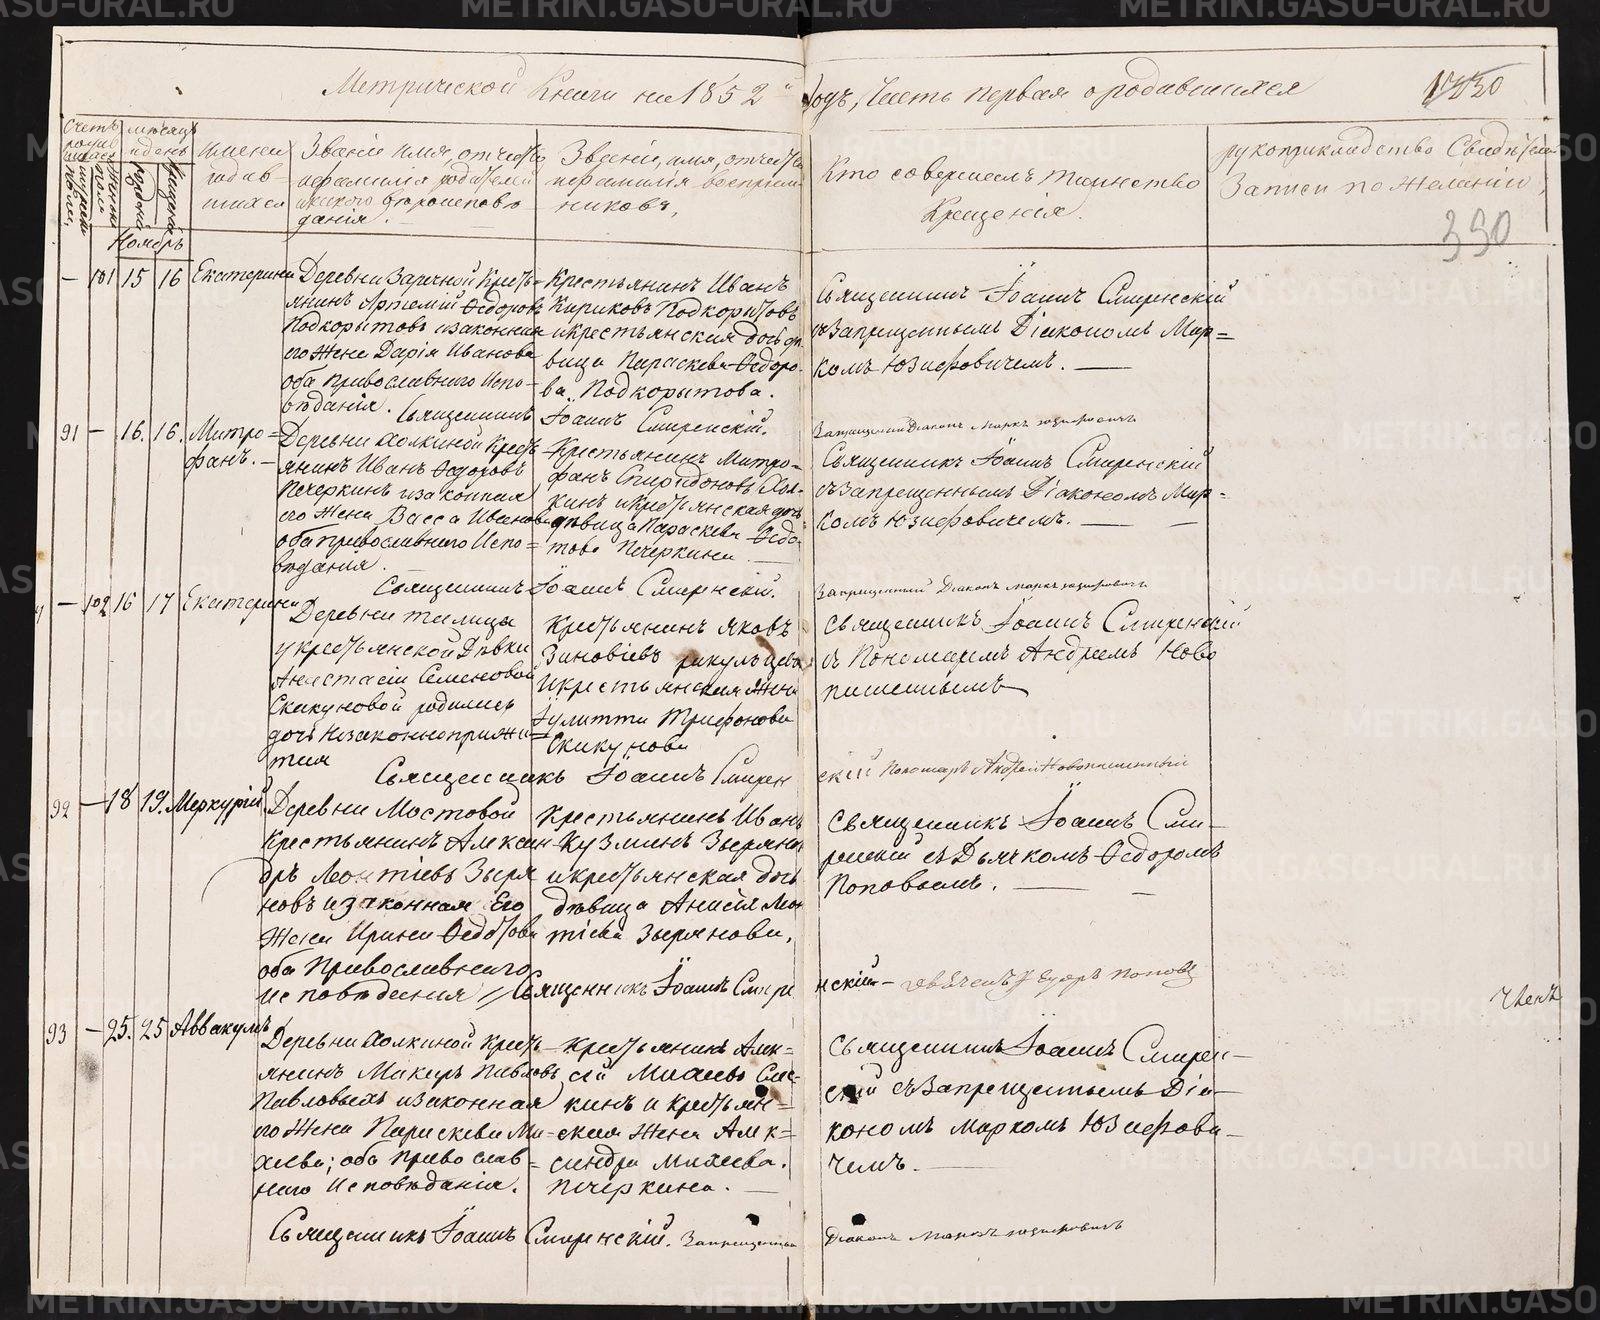 Метрической Книги на 1852 годъ, Часть первая о родившихся
330
Счетъ
Мѣсяцъ
и день
Имена
родив-
шихся
Званіе имя, отчество
и фамилія родителей
и какого вѣроисповѣ
данія.
Званіе, имя, отчество
и фамилія воспріем
никовъ,
Кто совершалъ таинство
Крещенія.
рукоприкладство Свидѣтелей
Записи по Желанію
Ноябрь
– 101 15 16 Екатерина
Деревни Заречной Кресть=
янинъ Артемій Ѳедоровъ
Подкорытовъ и законная
его Жена Дарія Иванова
оба православнаго Испо-
вѣданія.
Крестьянинъ Иванъ
Кириковъ Подкорытовъ
и крестьянская дочь дѣ
вица Параскева Ѳедоро-
ва Подкорытова.
Священникъ Іоаннъ Смиренскій
съ Запрещеннымъ Діакономъ Мар=
комъ Юзифовичемъ.
Священникъ Іоаннъ Смиренскій.
Запрещенный Діаконъ Маркъ Юзифовичъ
91 – 16. 16. Митро=
фанъ.
Деревни Холкиной Кресть
янинъ Иванъ Ѳедоровъ
Печеркинъ и законная
его Жена Васса Иванова
оба православнаго Испо=
вѣдания.
Крестьянинъ Митро=
фанъ Спиридоновъ Хол-
кинъ и крестьянская дочь
дѣвица Параскева Ѳедо
това Печеркина
Священникъ Іоаннъ Смиренскій
съ Запрещеннымъ Діакономъ Мар=
комъ Юзифовичемъ.
Священникъ Іоаннъ Смиренскій.
Запрещенный Діаконъ Маркъ Юзифовичъ
– 102 16 17 Екатерина
Деревни
у крестьянской Дѣвки
Анастасіи Семеновой
Скакуновой родилась
дочь Незаконноприжи=
тая
Крестьянинъ Яковъ
Зиновіевъ
и крестьянская Жена
Іулитта Трифонова
Скакунова
Священникъ Іоаннъ Смиренскій
съ Пономаремъ Андреемъ Ново
пашеннымъ
Священникъ Іоаннъ Смирен
скій Пономарь Андрей Новопашенный
92 – 18 19. Меркурій
Деревни Мостовой
Крестьянинъ Алексан
дръ Леонтіевъ Зыря
новъ и законная Его
Жена Ирина Ѳедотова
оба Православнаго
исповѣдения
Крестьянинъ Иванъ
Кузминъ Зырянов
и крестьянская дочь
дѣвица Анисія Леон
тіева Зырянова,
Священникъ Іоаннъ Сми-
ренскій съ Дьячкомъ Ѳедоромъ
Поповымъ.
Священникъ Іоаннъ Смире
нскій –
93 – 25. 25 Аввакумъ
Деревни Холкиной Кресть
янинъ Макаръ Павловъ
Павловыхъ и законная
его Жена Параскева Ми-
хеева; оба Православ=
наго Исповѣданія.
Крестьянинъ Алек=
сѣй Михеевъ
кинъ и крестьян=
ская Жена Алек=
сандра Михеева.
Печеркина.
Священникъ Іоаннъ Смирен-
скій съ Запрещеннымъ Діа-
кономъ Маркомъ Юзифови-
чемъ.
Священникъ Іоаннъ Смиренскій. Запрещенный
Діаконъ Маркъ Юзифовичъ
METRIKI.GASU-URAL.RU